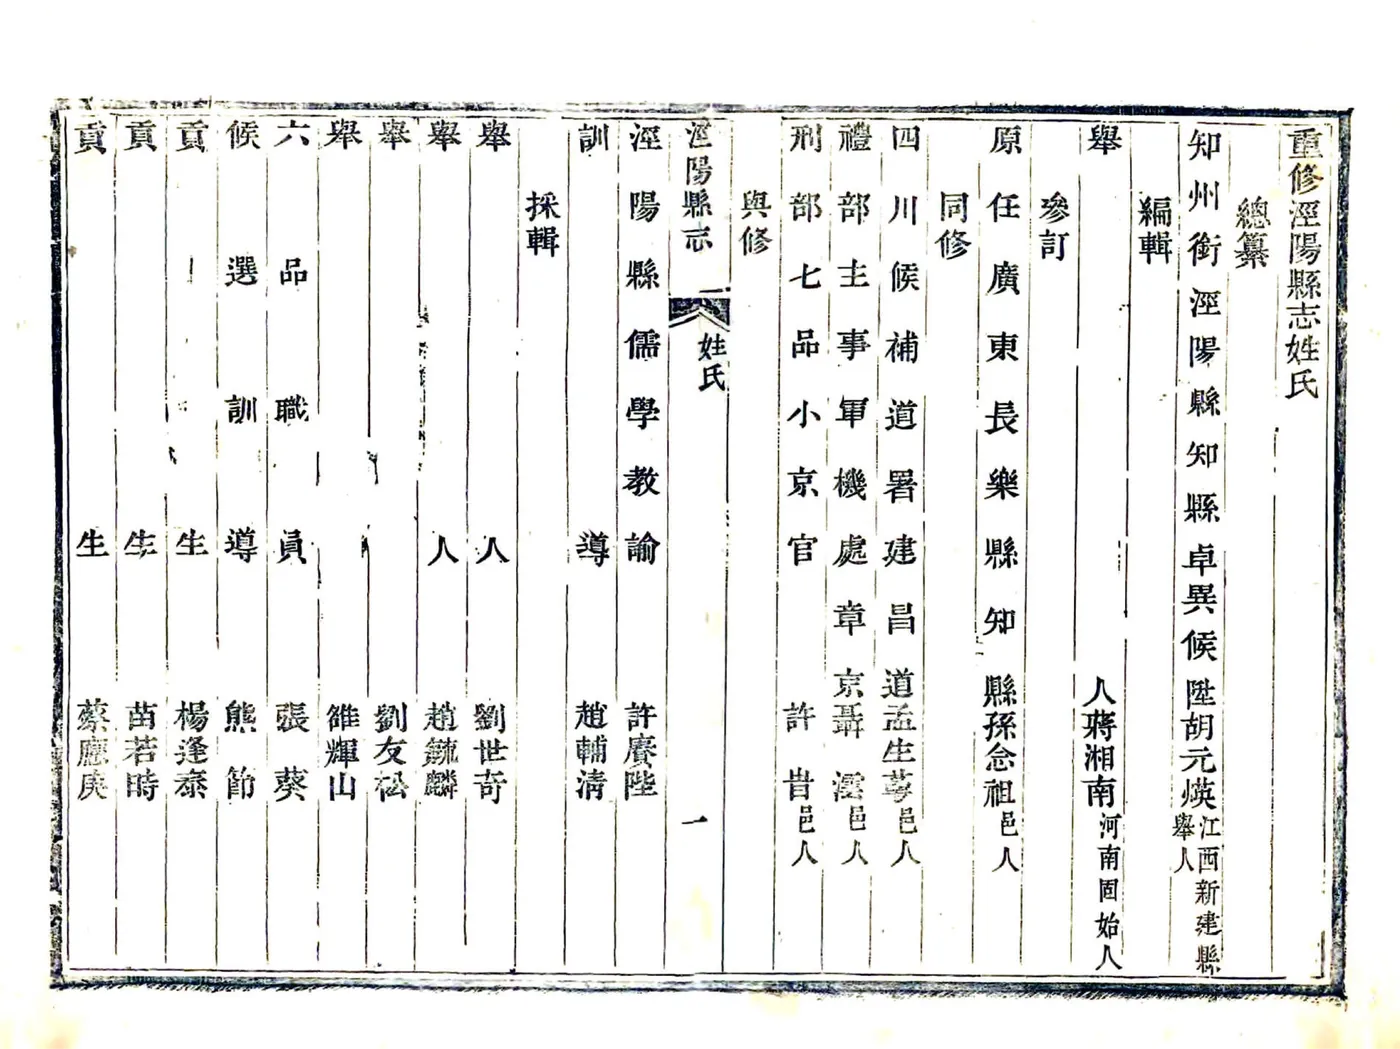 重修涇陽縣志姓氏
總纂
知州銜涇陽縣知縣卓異候陞胡元煐江西新建縣舉人
編輯
舉人蔣湘南河南固始人
參訂
原任廣東長樂縣知縣孫念祖邑人
同修
四川候補道署建昌道孟生蕚邑人
禮部主事軍機處章京聶澐邑人
刑部七品小京官許昔邑人
與修
涇陽縣志 姓氏 一
涇陽縣儒學教諭許賡陛
訓導趙輔清
採輯
舉人劉世奇
舉人趙毓麟
舉劉友松
舉雒輝山
六品職員張葵
候選訓導熊節
貢生楊逢泰
貢生苗若時
貢生蔡應庚